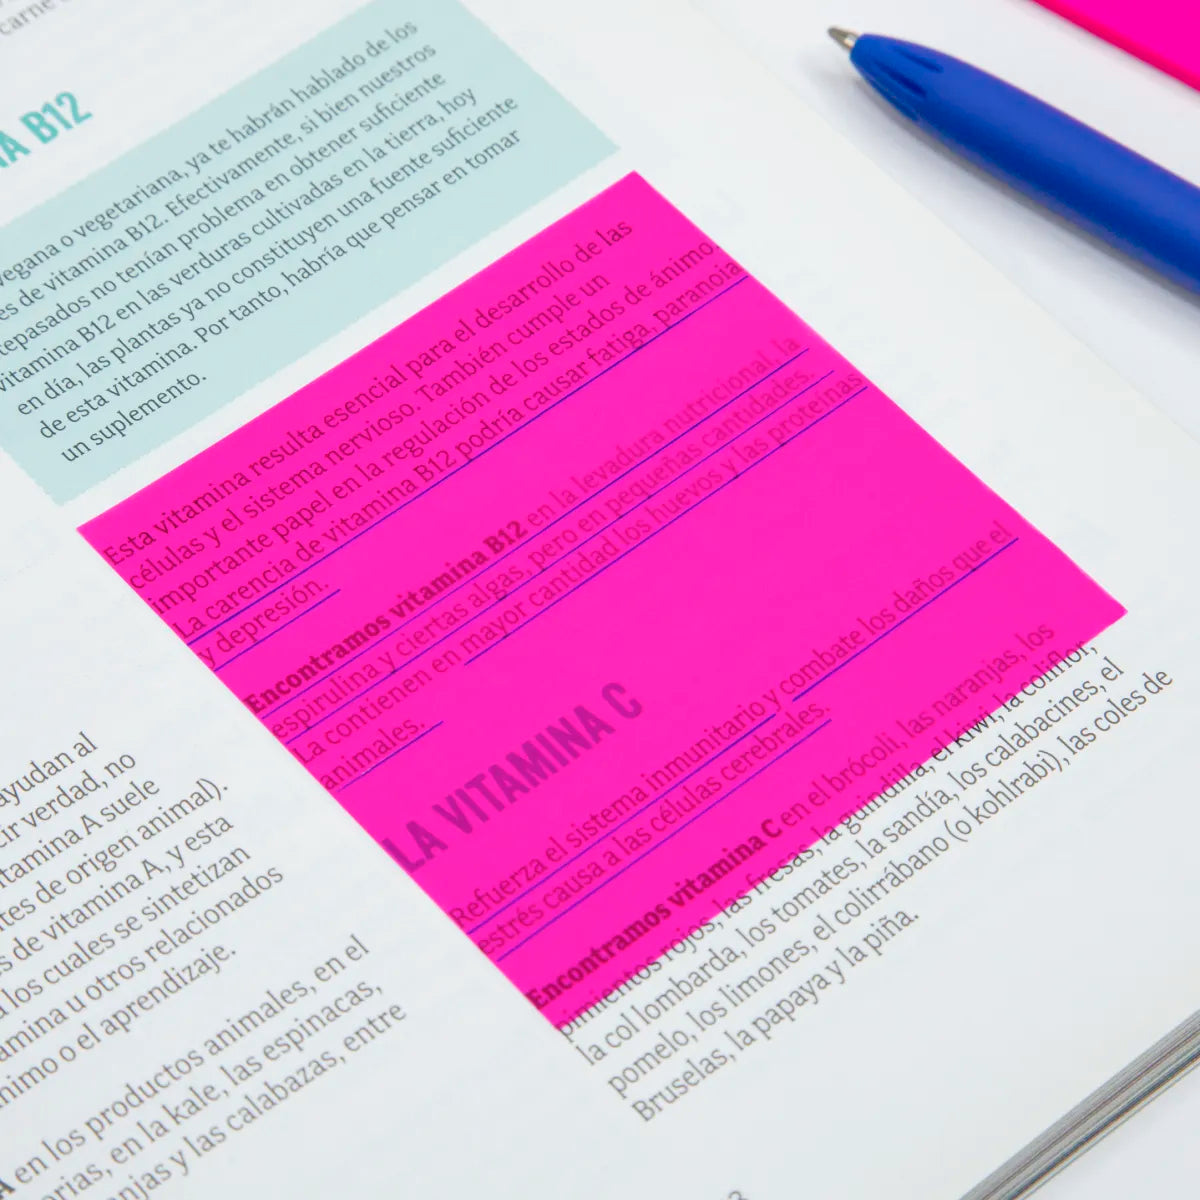 carne
B12
vegana o vegetariana, ya te habrán hablado de los
es de vitamina B12. Efectivamente, si bien nuestros
tepasados no tenían problema en obtener suficiente
vitamina B12 en las verduras cultivadas en la tierra, hoy
en día, las plantas ya no constituyen una fuente suficiente
de esta vitamina. Por tanto, habría que pensar en tomar
un suplemento.
Esta vitamina resulta esencial para el desarrollo de las
células y el sistema nervioso. También cumple un
importante papel en la regulación de los estados de ánimo.
La carencia de vitamina B12 podría causar fatiga, paranoia
y depresión.
Encontramos vitamina B12 en la levadura nutricional, la
espirulina y ciertas algas, pero en pequeñas cantidades.
La contienen en mayor cantidad los huevos y las proteínas
animales.
LA VITAMINA C
Refuerza el sistema inmunitario y combate los daños que el
estrés causa a las células cerebrales.
Encontramos vitamina C en el brócoli, las naranjas, los
pimientos rojos, las fresas, la guindilla, el kiwi, la coliflor,
la col lombarda, los tomates, la sandía, los calabacines, el
pomelo, los limones, el colirrábano (o kohlrabi), las coles de
Bruselas, la papaya y la piña.
ayudan al
cir verdad, no
itamina A suele
tes de origen animal).
s de vitamina A, y esta
los cuales se sintetizan
amina u otros relacionados
nimo o el aprendizaje.
A en los productos animales, en el
orias, en la kale, las espinacas,
njas y las calabazas, entre